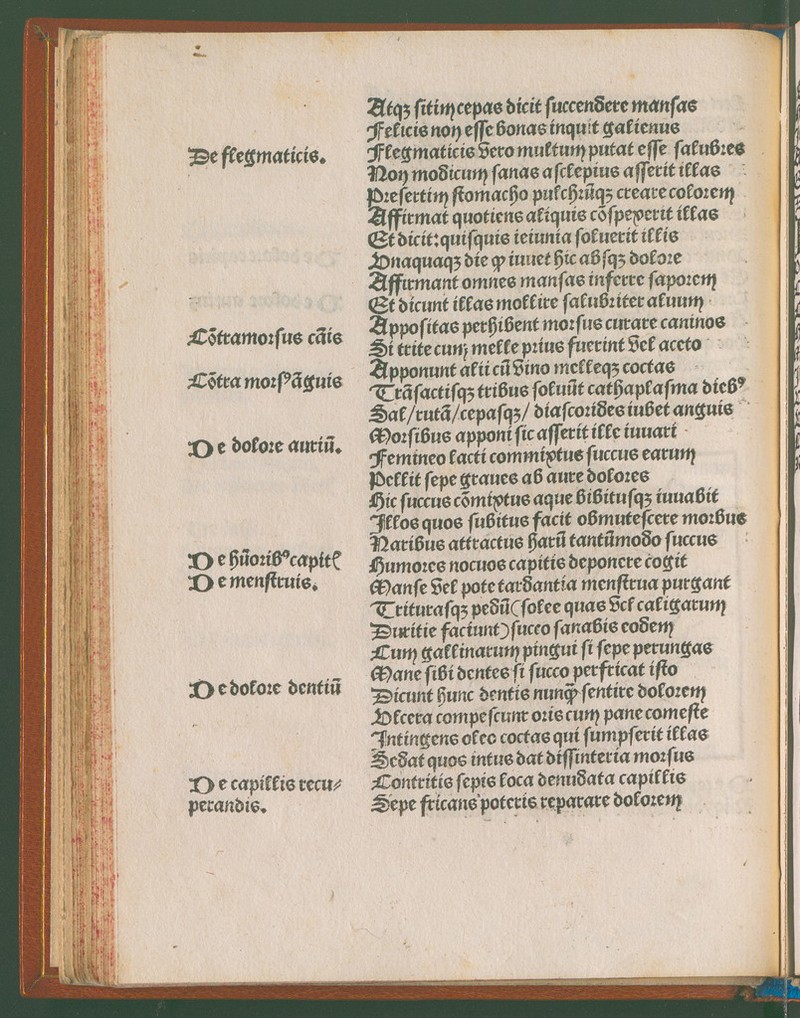 Atqʒ ſitim cepas dicit ſuccendere manſas
Felicis non eſſe bonas inquit galienus
De flegmaticis.
Flegmaticis vero multum putat eſſe ſalubres
Non modicum ſanas aſclepius aſſerit illas
Preſertim ſtomacho pulchrūqʒ creare colorem
Affirmat quotiens aliquis cōſpexerit illas
Et dicit: quiſquis ieiunia ſoluerit illis
Vnaquaqʒ die ꝙ iuuet hic abſqʒ dolore
Affirmant omnes manſas inferre ſaporem
Et dicunt illas mollire ſalubriter aluum
Appoſitas perhibent morſus curare caninos
Cōtra morſus cāis
Si trite cum melle prius fuerint vel aceto
Apponunt alii cū vino melleqʒ coctas
Cōtra morſꝰ āguis
Trāſactiſqʒ tribus ſoluūt cathaplaſma diebꝰ
Sal/rutā/cepaſqʒ/ diaſcorides iubet anguis
Morſibus apponi ſic aſſerit ille iuuari
De dolore auriū.
Femineo lacti commixtus ſuccus earum
Pellit ſepe graues ab aure dolores
Hic ſuccus cōmixtus aque bibituſqʒ iuuabit
Illos quos ſubitus facit obmuteſcere morbus
Naribus attractus harū tantūmodo ſuccus
De hūoribꝰ capitꝭ
Humores nocuos capitis deponere cogit
De menſtruis.
Manſe vel pote tardantia menſtrua purgant
Trituraſqʒ pedū (ſolee quas vel caligarum
Duritie faciunt) ſucco ſanabis eodem
Cum gallinarum pingui ſi ſepe perungas
Mane ſibi dentes ſi ſucco perfricat iſto
De dolore dentiū
Dicunt hunc dentis nunꝗ̄ ſentire dolorem
Vlcera compeſcunt oris cum pane comeſte
Intingens oleo coctas qui ſumpſerit illas
Sedat quos intus dat diſſinteria morſus
De capillis recu⸗
Contritis ſepis loca denudata capillis
perandis.
Sepe fricans poteris reparare dolorem